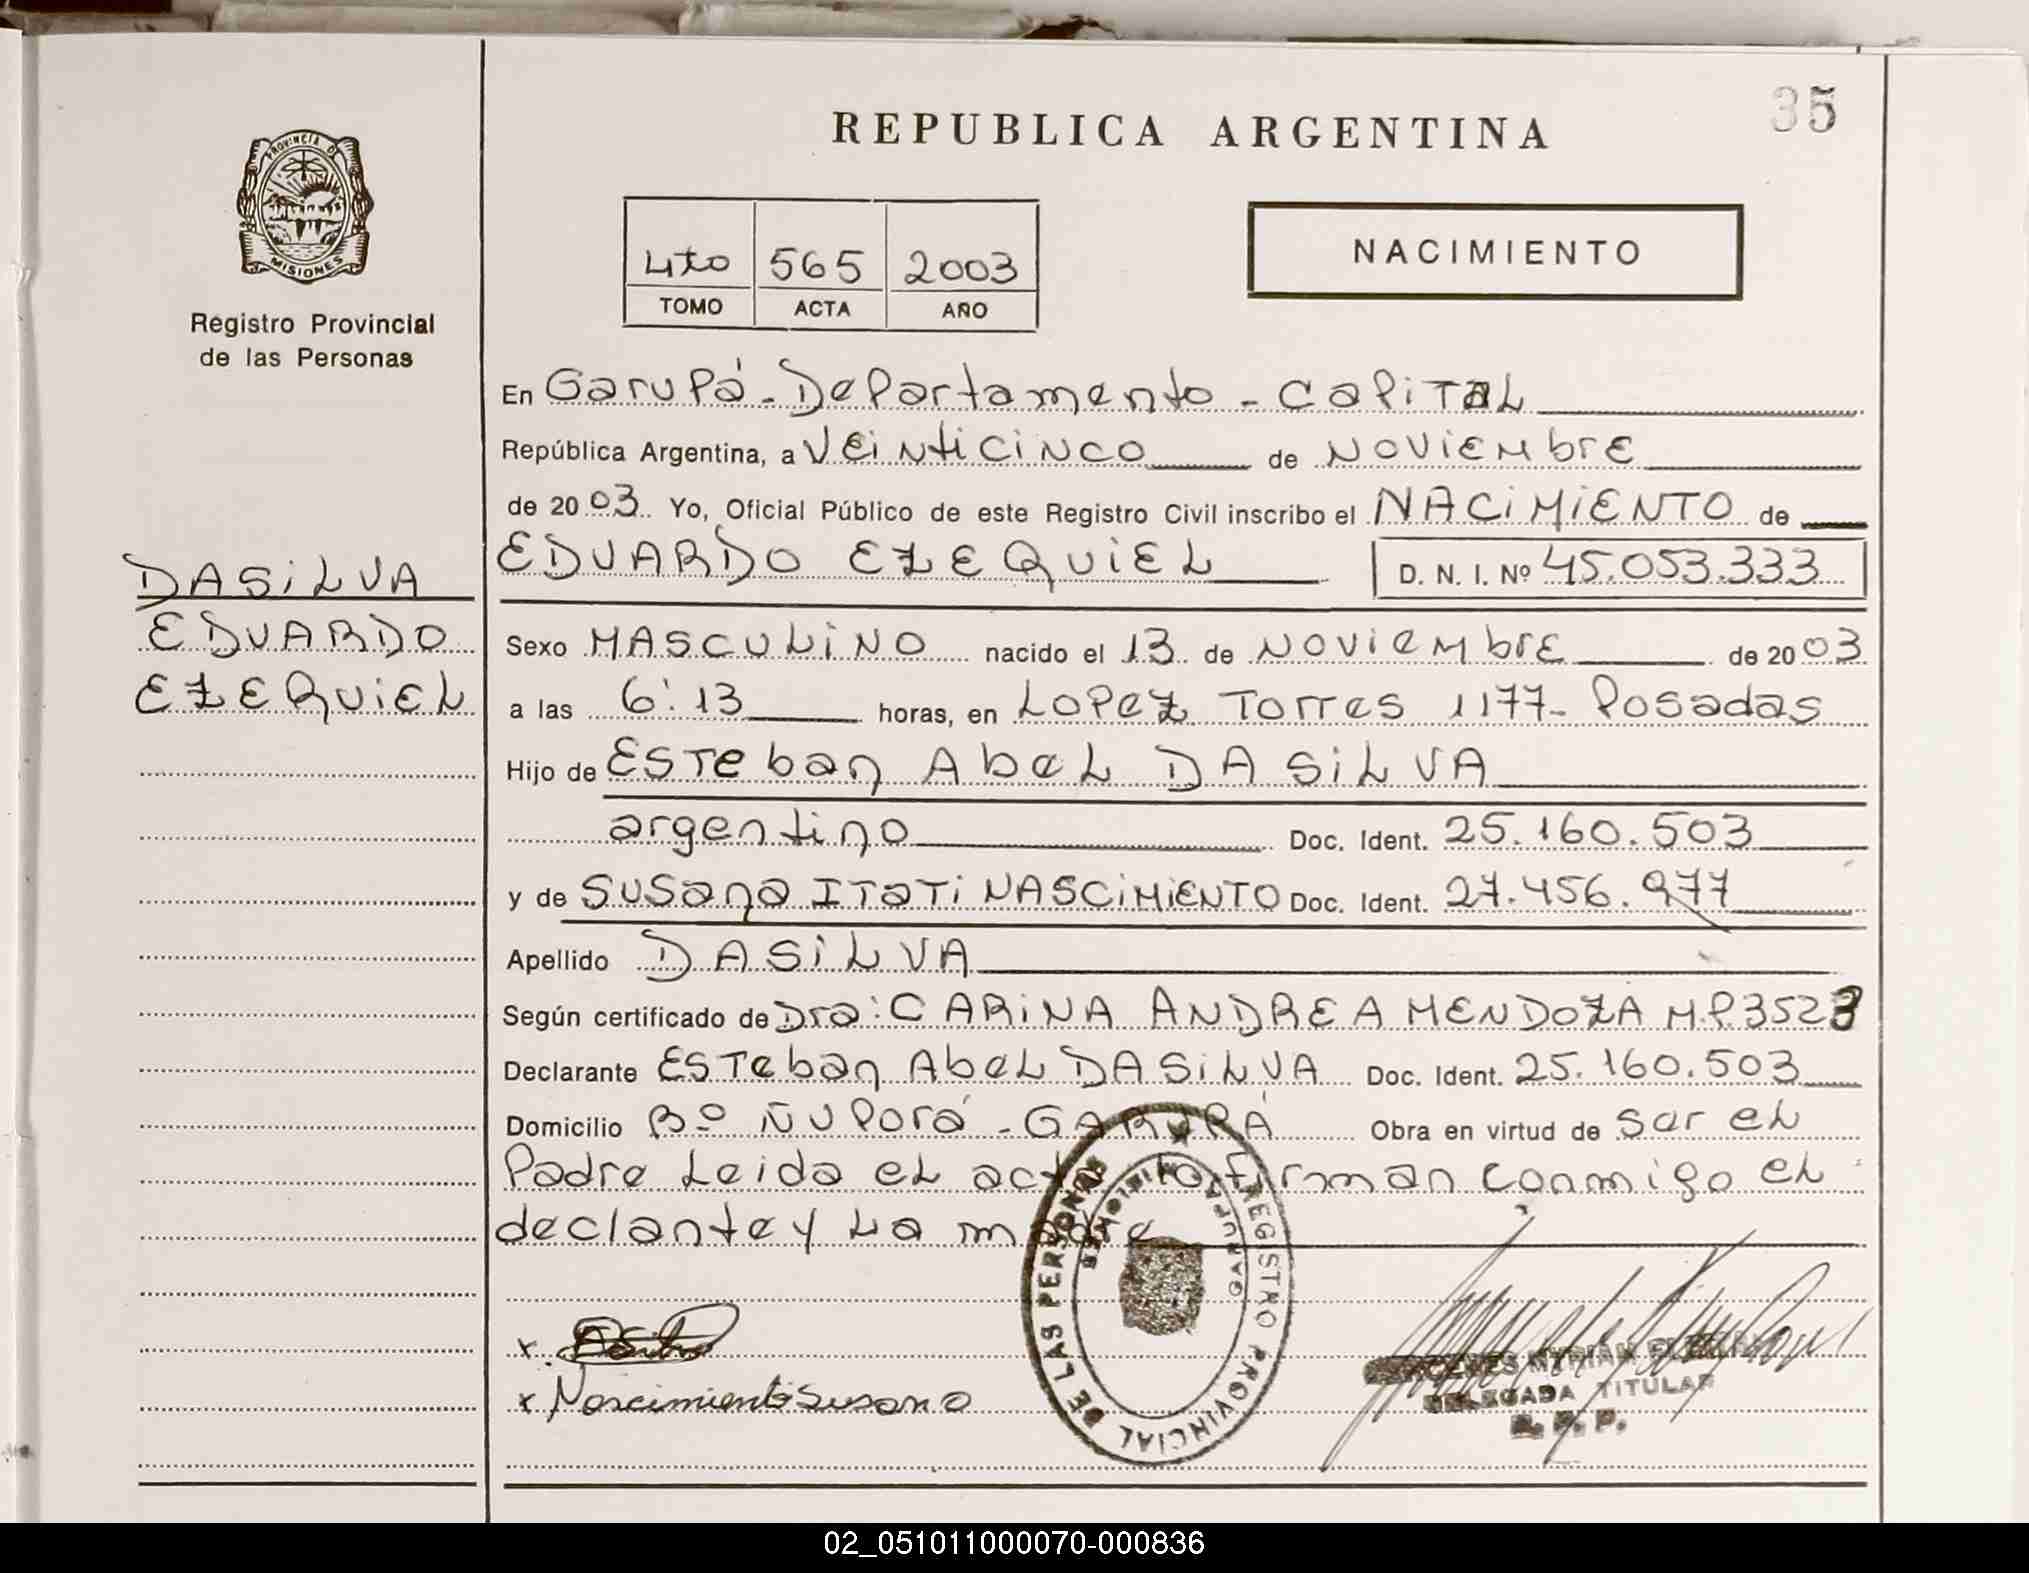 35
REPUBLICA ARGENTINA
PROVINCIA DE
MISIONES
Registro Provincial
de las Personas
4to 565 2003
TOMO ACTA AÑO
NACIMIENTO
En Garupá - Departamento - Capital
República Argentina, a Veinticinco de Noviembre
de 2003 Yo, Oficial Público de este Registro Civil inscribo el NACIMIENTO de
EDUARDO EZEQUIEL D. N. I. Nº 45.053.333
DA SILVA
EDUARDO
EZEQUIEL
Sexo MASCULINO nacido el 13 de Noviembre de 2003
a las 6:13 horas, en Lopez Torres 1177 - Posadas
Hijo de Esteban Abel DA SILVA
argentino Doc. Ident. 25.160.503
y de Susana Itati NASCIMIENTO Doc. Ident. 27.456.977
Apellido DA SILVA
Según certificado de Dra: CARINA ANDREA MENDOZA M.P. 3523
Declarante Esteban Abel DA SILVA Doc. Ident. 25.160.503
Domicilio Bº Ñu Porá - GARUPÁ Obra en virtud de ser el
Padre Leida el acta la firman conmigo el
declante y La madre
REGISTRO PROVINCIAL DE LAS PERSONAS
GARUPA MISIONES
x Nascimiento Susana
MYRIAM
DELEGADA TITULAR
R. P. P.
02_051011000070-000836